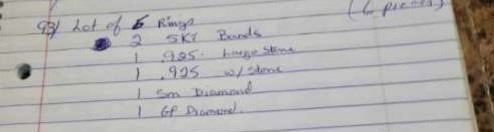 (6 pieces)
93/ Lot of 6 Rings
2 5KT Bands
1 .925. Large Stone
1 .925 w/ Stone
1 Sm Diamond
1 GP Diamond.